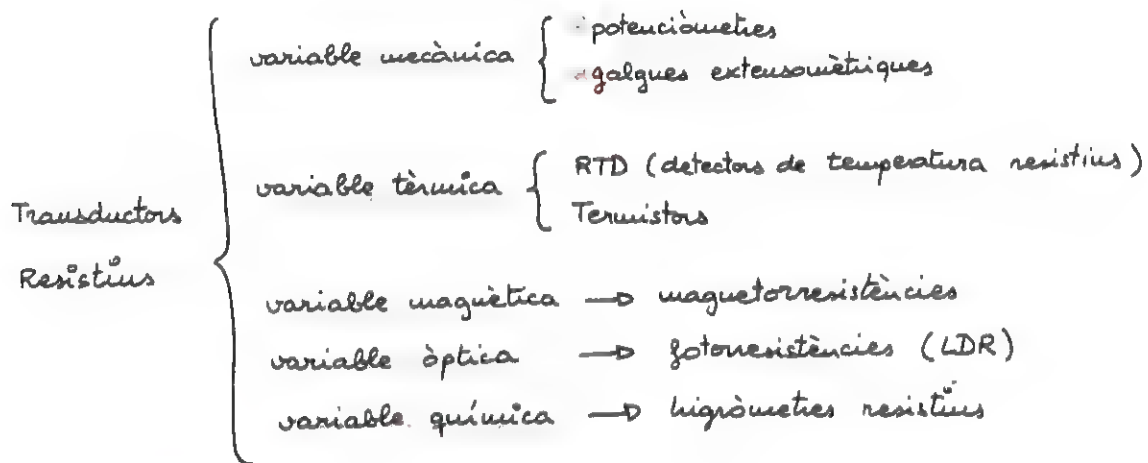 variable mecànica { · potenciòmetres
- galgues extensomètriques
variable tèrmica { RTD (detectors de temperatura resistius)
Termistors
Transductors
Resistius
variable magnètica → magnetorresistències
variable òptica → fotorresistències (LDR)
variable química → higròmetres resistius